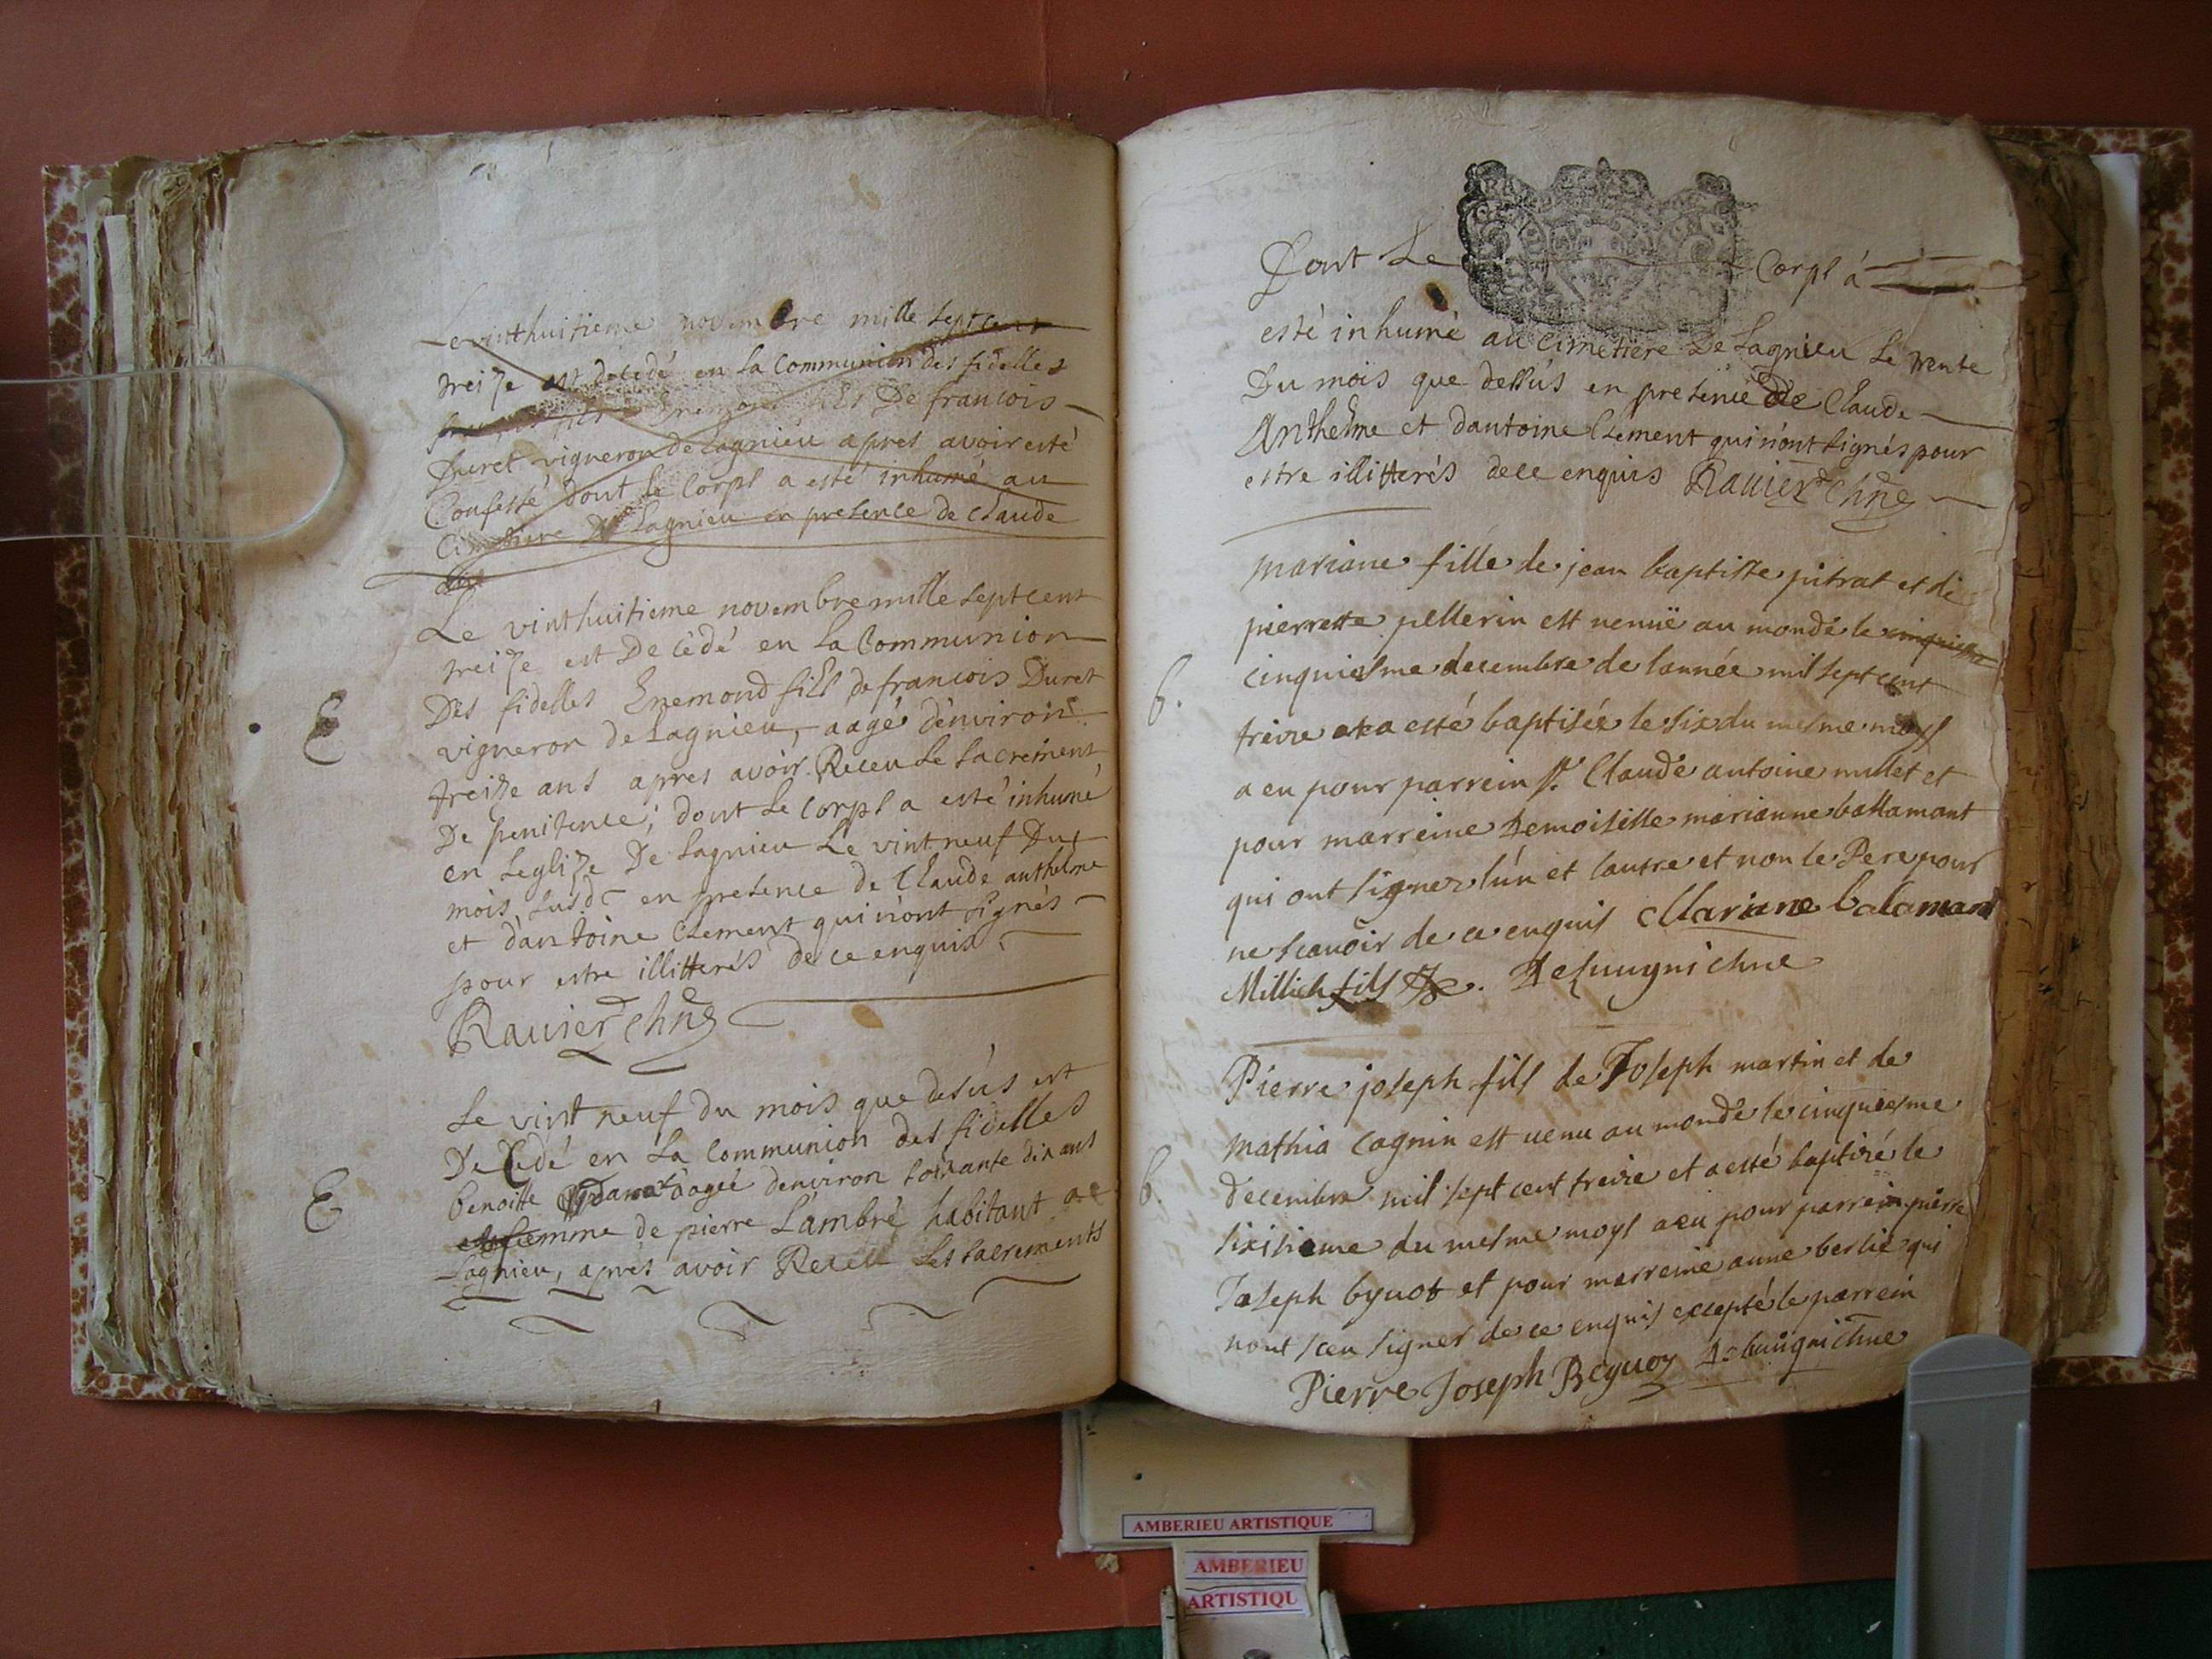 Le vinthuitieme novembre mille septcent
treize est decedé en la Communion des fidelles
Enemond fils De francois
Duret vigneron de Lagnieu apres avoir esté
Confessé dont le Corps a esté inhumé au
Cimetiere De Lagnieu en presence de Claude
Le vinthuitieme novembre mille septcent
treize est Decédé en La Communion
Des fidelles Enemond fils de francois Duret
vigneron de Lagnieu, aagé d'environ
treize ans apres avoir Receu Le sacrement
De penitence; dont Le Corps a esté inhumé
en Leglize De Lagnieu Le vint neuf Du
mois susd en presence de Claude anthelme
et d'antoine Clement qui n'ont signés
pour estre illitterés de ce enquis
Ravier chne
E
Le vint neuf du mois que desús est
Decedé en La Communion des fidelles
benoitte aagée denviron soixante dix ans
femme de pierre Lambré habitant de
Lagnieu, aprés avoir Receu Les sacrements
E
Dont Le Corps á
esté inhumé au Cimetiere De Lagnieu Le trente
Du mois que dessús en presence De Claude
Anthelme et dantoine Clement qui n'ont signés pour
estre illitterés de ce enquis Ravier chne
mariane fille de jean baptiste pitrat et de
pierrette pellerin est venuë au monde le cinquiesme
cinquiesme decembre de lannée mil sept cent
treize et a esté baptisée le six du mesme moys
a eu pour parrein Sr. Claude antoine millet et
pour marreine Demoiselle marianne ballamant
qui ont signez lún et lautre et non le Pere pour
ne scavoir de ce enquis Mariane balamant
Millieh fils chne
b.
Pierre joseph fils de Joseph martin et de
mathia Cagnin est venu au monde le cinquiesme
decembre mil sept cent treize et a esté baptizé le
sixisieme du mesme moys a eu pour parrein pierre
Joseph byuot et pour marreine anne berlie qui
nont sceu signer de ce enquis excepté le parrein
Pierre Joseph Beguoz chne
b.
AMBERIEU ARTISTIQUE
AMBERIEU
ARTISTIQU